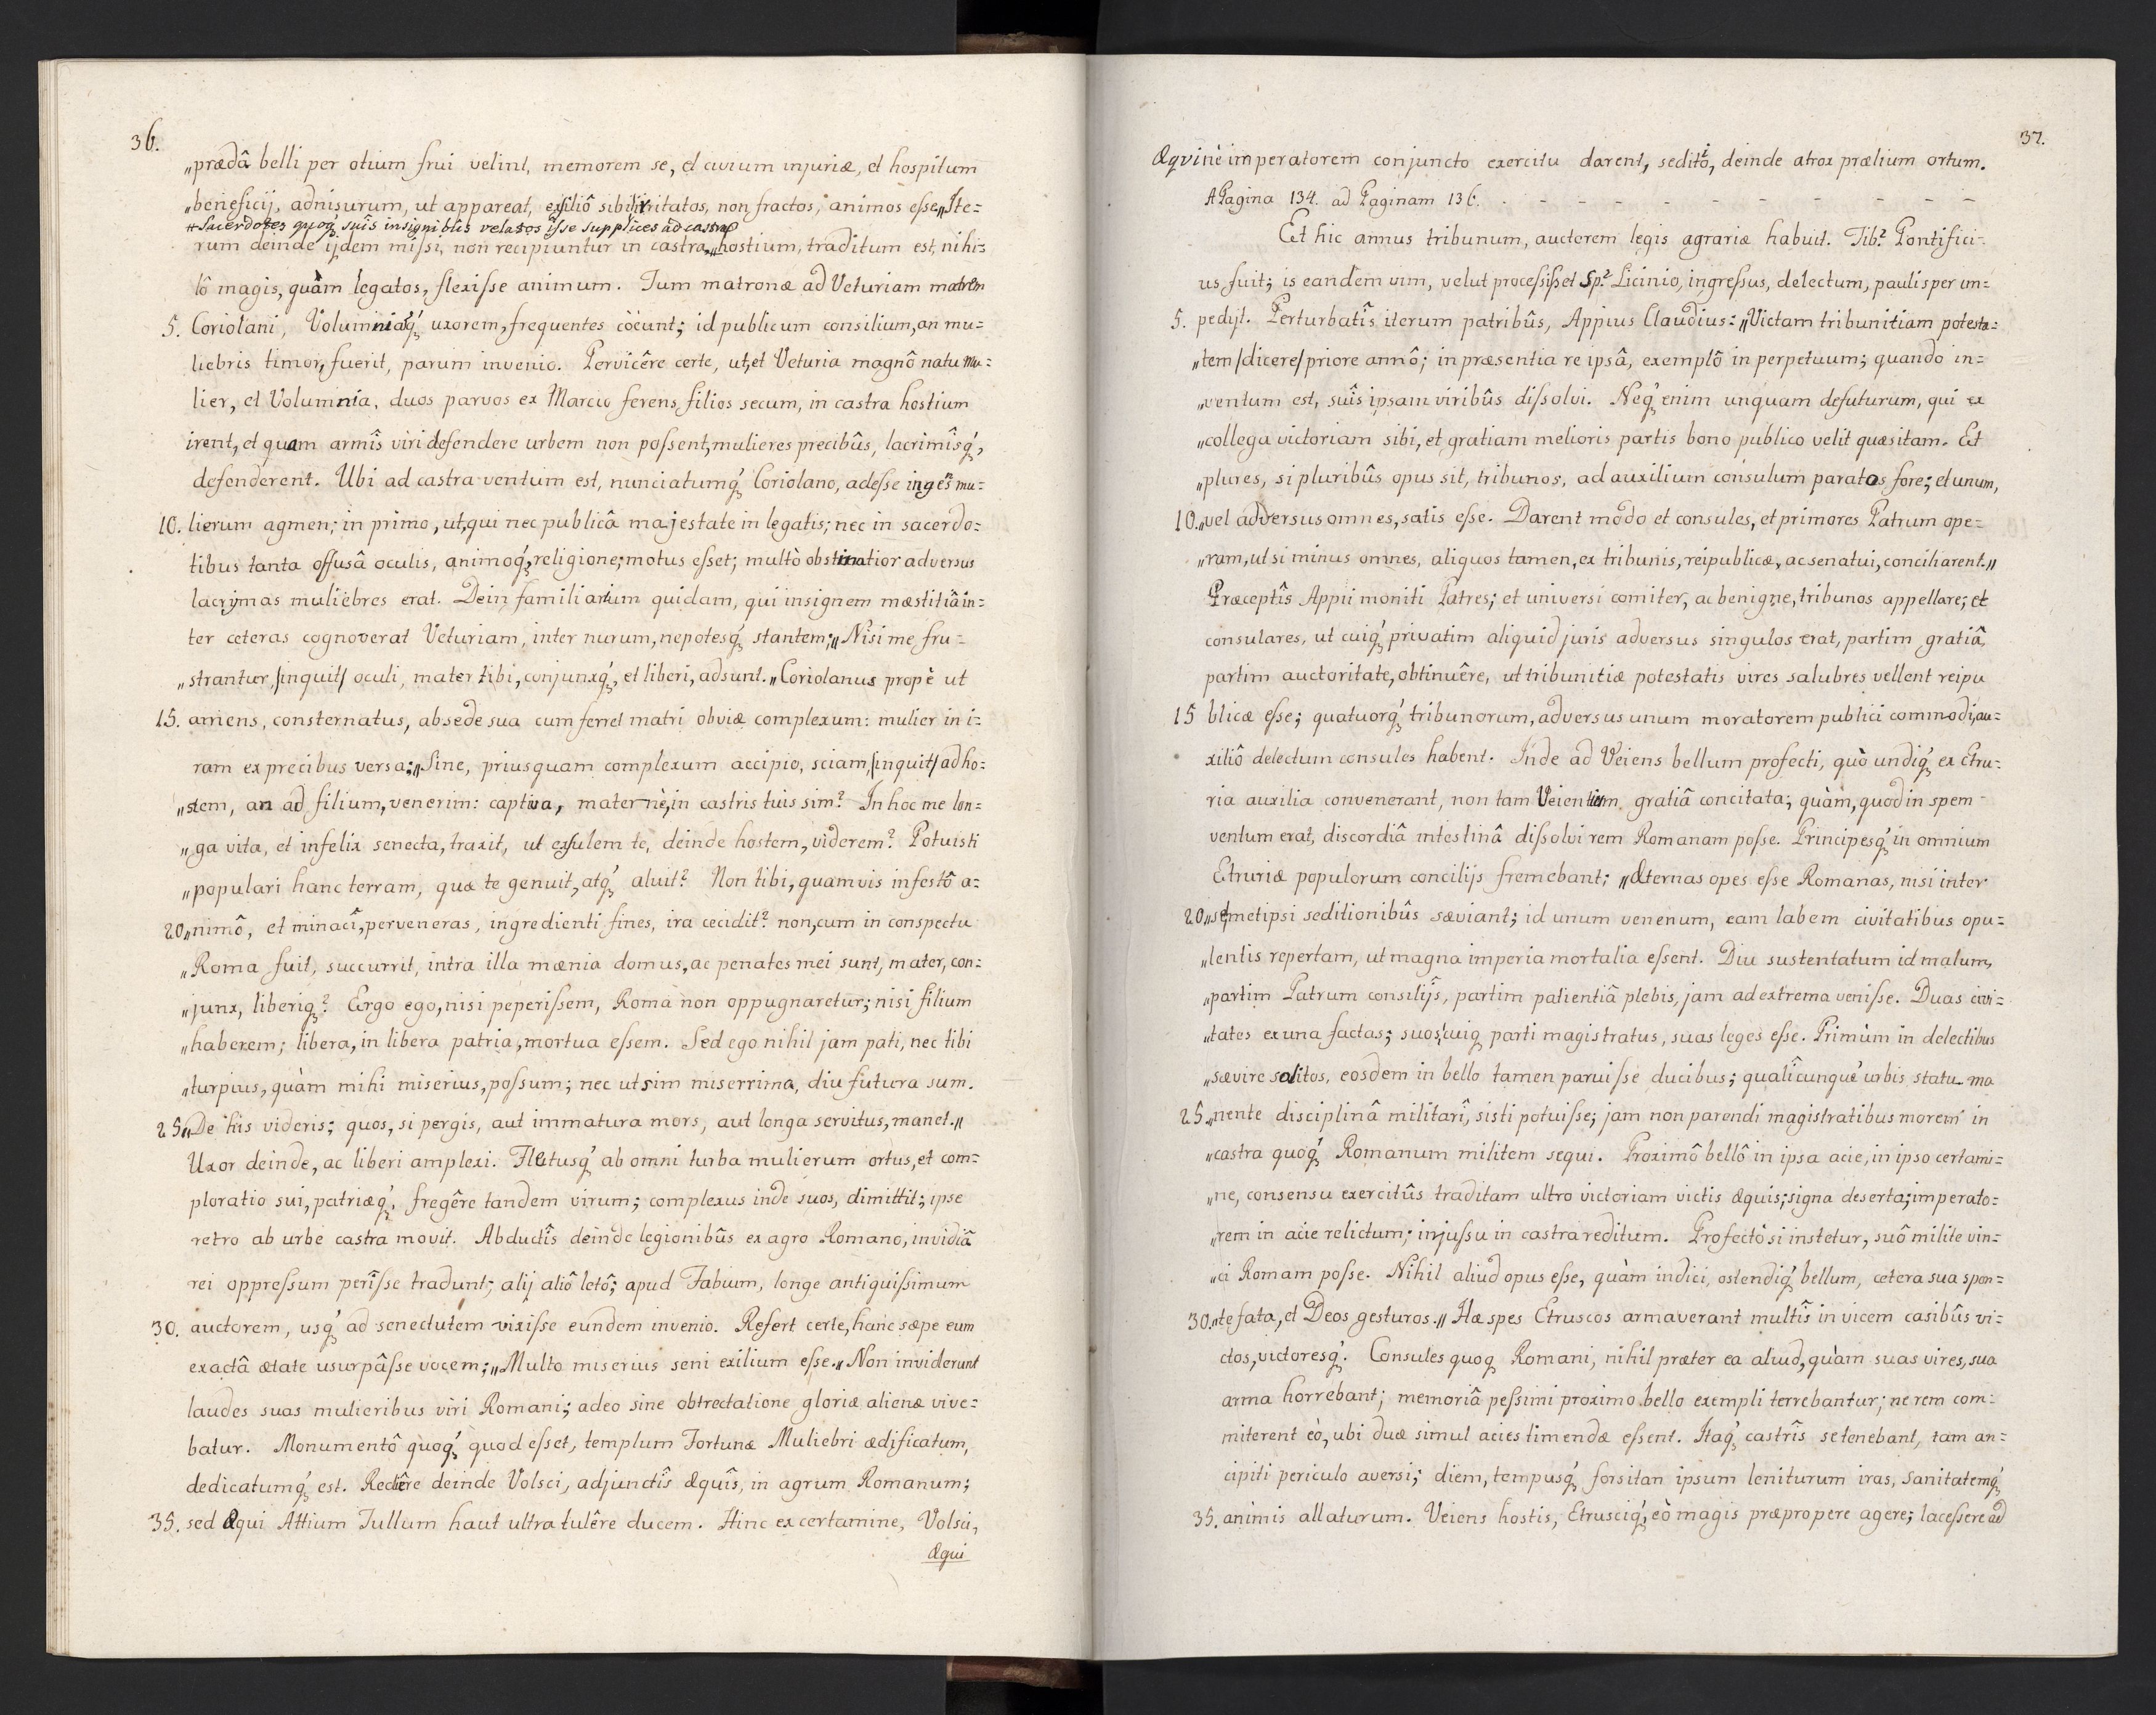 36.
„prædâ belli per otium frui velint, memorem se, et civium injuriæ, et hospitum
„beneficij, adnisurum, ut appareat, exsiliô sibi irritatos, non fractos, animos eſse„ Ite=
# Sacerdotes quoq́ʒ suîs insignibûs velatos iſse supplices ad castra
rum deinde ijdem miſsi, non recipiuntur in castra,# hostium, traditum est, nihi=
lô magis, quàm legatos, flexiſse animum. Tum matronæ ad Veturiam matrem
5. Coriolani, Volumniaq́ʒ uxorem, frequentes cöëunt; id publicum consilium, an mu=
liebris timor, fuerit, parum invenio. Pervicêre certe, ut, et Veturia magnô natu mu=
lier, et Volumnia, duos parvos ex Marcio ferens filios secum, in castra hostium
irent, et quam armîs viri defendere urbem non poſsent, mulieres precibûs, lacrimîsq́ʒ,
defenderent. Ubi ad castra ventum est, nunciatumq́ʒ Coriolano, adeſse ingēs mu=
10. lierum agmen; in primo, ut, qui nec publicâ majestate in legatis; nec in sacerdo=
tibus tanta offusâ oculis, animoq́ʒ, religione; motus eſset; multò obstinatior adversus
lacrymas muliebres erat. Dein familiarium quidam, qui insignem mæstitiâ in=
ter ceteras cognoverat Veturiam, inter nurum, nepotesq́ʒ stantem; „Nisi me fru=
„strantur, /inquit/ oculi, mater tibi, conjunxq́ʒ, et liberi, adsunt.„ Coriolanus propè ut
15. amens, consternatus, ab sede sua cum ferret matri obviæ complexum: mulier in i=
ram ex precibus versa; „Sine, priusquam complexum accipio, sciam, /inquit/ ad ho=
„stem, an ad filium, venerim: captiva, mater nè, in castris tuis sim? In hoc me lon=
„ga vita, et infelix senecta, traxit, ut exsulem te, deinde hostem, viderem? Potuisti
„populari hanc terram, quæ te genuit, atq́ʒ aluit? Non tibi, quamvis infestô a=
20 „nimô, et minacî, perveneras, ingredienti fines, ira cecidit? non, cum in conspectu
„Roma fuit, succurrit, intra illa mœnia domus, ac penates mei sunt, mater, con=
„junx, liberiqʒ? Ergo ego, nisi peperiſsem, Roma non oppugnaretur; nisi filium
„haberem; libera, in libera patria, mortua eſsem. Sed ego nihil jam pati, nec tibi
„turpius, quàm mihi miserius, poſsum; nec ut sim miserrima, diu futura sum.
25 „De his videris; quos, si pergis, aut immatura mors, aut longa servitus, manet.„
Uxor deinde, ac liberi amplexi. Fletusq́ʒ ab omni turba mulierum ortus, et com=
ploratio sui, patriæq́ʒ, fregêre tandem virum; complexus inde suos, dimittit; ipse
retro ab urbe castra movit. Abductîs deinde legionibûs ex agro Romano, invidiâ
rei oppreſsum perîſse tradunt; alij aliô letô; apud Fabium, longe antiquiſsimum
30. auctorem, usq́ʒ ad senectutem vixiſse eundem invenio. Refert certe, hanc sæpe eum
exactâ ætate usurpâſse vocem; „Multo miserius seni exilium eſse.„ Non inviderunt
laudes suas mulieribus viri Romani; adeo sine obtrectatione gloriæ alienæ vive=
batur. Monumentô quoq́ʒ quod eſset, templum Fortunæ Muliebri ædificatum,
dedicatumq́ʒ est. Rediêre deinde Volsci, adjunctîs Æquîs, in agrum Romanum;
35. sed Æqui Attium Tullum haut ultra tulêre ducem. Hinc ex certamine, Volsci,
Æqui
37.
Æqvinè imperatorem conjuncto exercitu darent, seditiō, deinde atrox prælium ortum.
A Pagina 134. ad Paginam 136. . - - - - - - - - - -
Et hic annus tribunum, auctorem legis agrariæ habuit. Tib.ꝰ Pontifici=
us fuit; is eandem vim, velut proceſsiſset Sp.ꝰ Licinio, ingreſsus, delectum, paulisper im=
5. pedijt. Perturbatîs iterum patribûs, Appius Claudius: „Victam tribunitiam potesta=
„tem /dicere/ priore annô; in præsentia re ipsâ, exemplô in perpetuum; quando in=
„ventum est, suîs ipsam viribûs diſsolvi. Neq́ʒ enim unquam defuturum, qui ex
„collega victoriam sibi, et gratiam melioris partis bono publico velit quæsitam. Et
„plures, si pluribûs opus sit, tribunos, ad auxilium consulum paratos fore; et unum,
10. „vel adversus omnes, satis eſse. Darent modo et consules, et primores Patrum ope=
„ram, ut si minus omnes, aliquos tamen, ex tribunis, reipublicæ, ac senatui, conciliarent.„
Præceptîs Appii moniti Patres; et universi comiter, ac benigne, tribunos appellare; et
consulares, ut cuiq́ʒ privatim aliquid juris adversus singulos erat, partim gratiâ,
partim auctoritate, obtinuêre, ut tribunitiæ potestatis vires salubres vellent reipu
15 blicæ eſse; quatuorq́ʒ tribunorum, adversus unum moratorem publici commodi, au=
xiliô delectum consules habent. Inde ad Veiens bellum profecti, quò undiq́ʒ ex Etru=
ria auxilia convenerant, non tam Veientium gratiâ concitata; quàm, quod in spem
ventum erat, discordiâ intestinâ diſsolvi rem Romanam poſse. Principesq́ʒ in omnium
Etruriæ populorum concilijs fremebant; „Æternas opes eſse Romanas, nisi inter
20 „semetipsi seditionibûs sæviant; id unum venenum, eam labem civitatibus opu=
„lentis repertam, ut magna imperia mortalia eſsent. Diu sustentatum id malum,
„partim Patrum consilijs, partim patientiâ plebis, jam ad extrema veniſse. Duas civi=
„tates ex una factas; suos, cuiqʒ parti magistratus, suas leges eſse. Primùm in delectibus
„sævire solitos, eosdem in bello tamen paruiſse ducibus; qualîcunque urbis statu ma
25. „nente disciplinâ militarî, sisti potuiſse; jam non parendi magistratibus morem in
„castra quoq́ʒ Romanum militem sequi. Proximô bellô in ipsa acie, in ipso certami=
„ne, consensu exercitûs traditam ultro victoriam victis Æquis; signa deserta; imperato=
„rem in acie relictum; injuſsu in castra reditum. Profectò si instetur, suô milite vin=
„ci Romam poſse. Nihil aliud opus eſse, quàm indici, ostendiq́ʒ bellum, cetera sua spon=
30. „te fata, et Deos gesturos.„ Hæ spes Etruscos armaverant multîs in vicem casibûs vi=
ctos, victoresq́ʒ. Consules quoqʒ Romani, nihil præter ea aliud, quàm suas vires, sua
arma horrebant; memoriâ peſsimi proximo bello exempli terrebantur; ne rem com=
miterent eò, ubi duæ simul acies timendæ eſsent. Itaq́ʒ castrîs se tenebant, tam an=
cipiti periculo aversi; diem, tempusq́ʒ forsitan ipsum leniturum iras, sanitatemq́ʒ
35. animis allaturum. Veiens hostis, Etrusciq́ʒ, eò magis præpropere agere; laceſsere ad